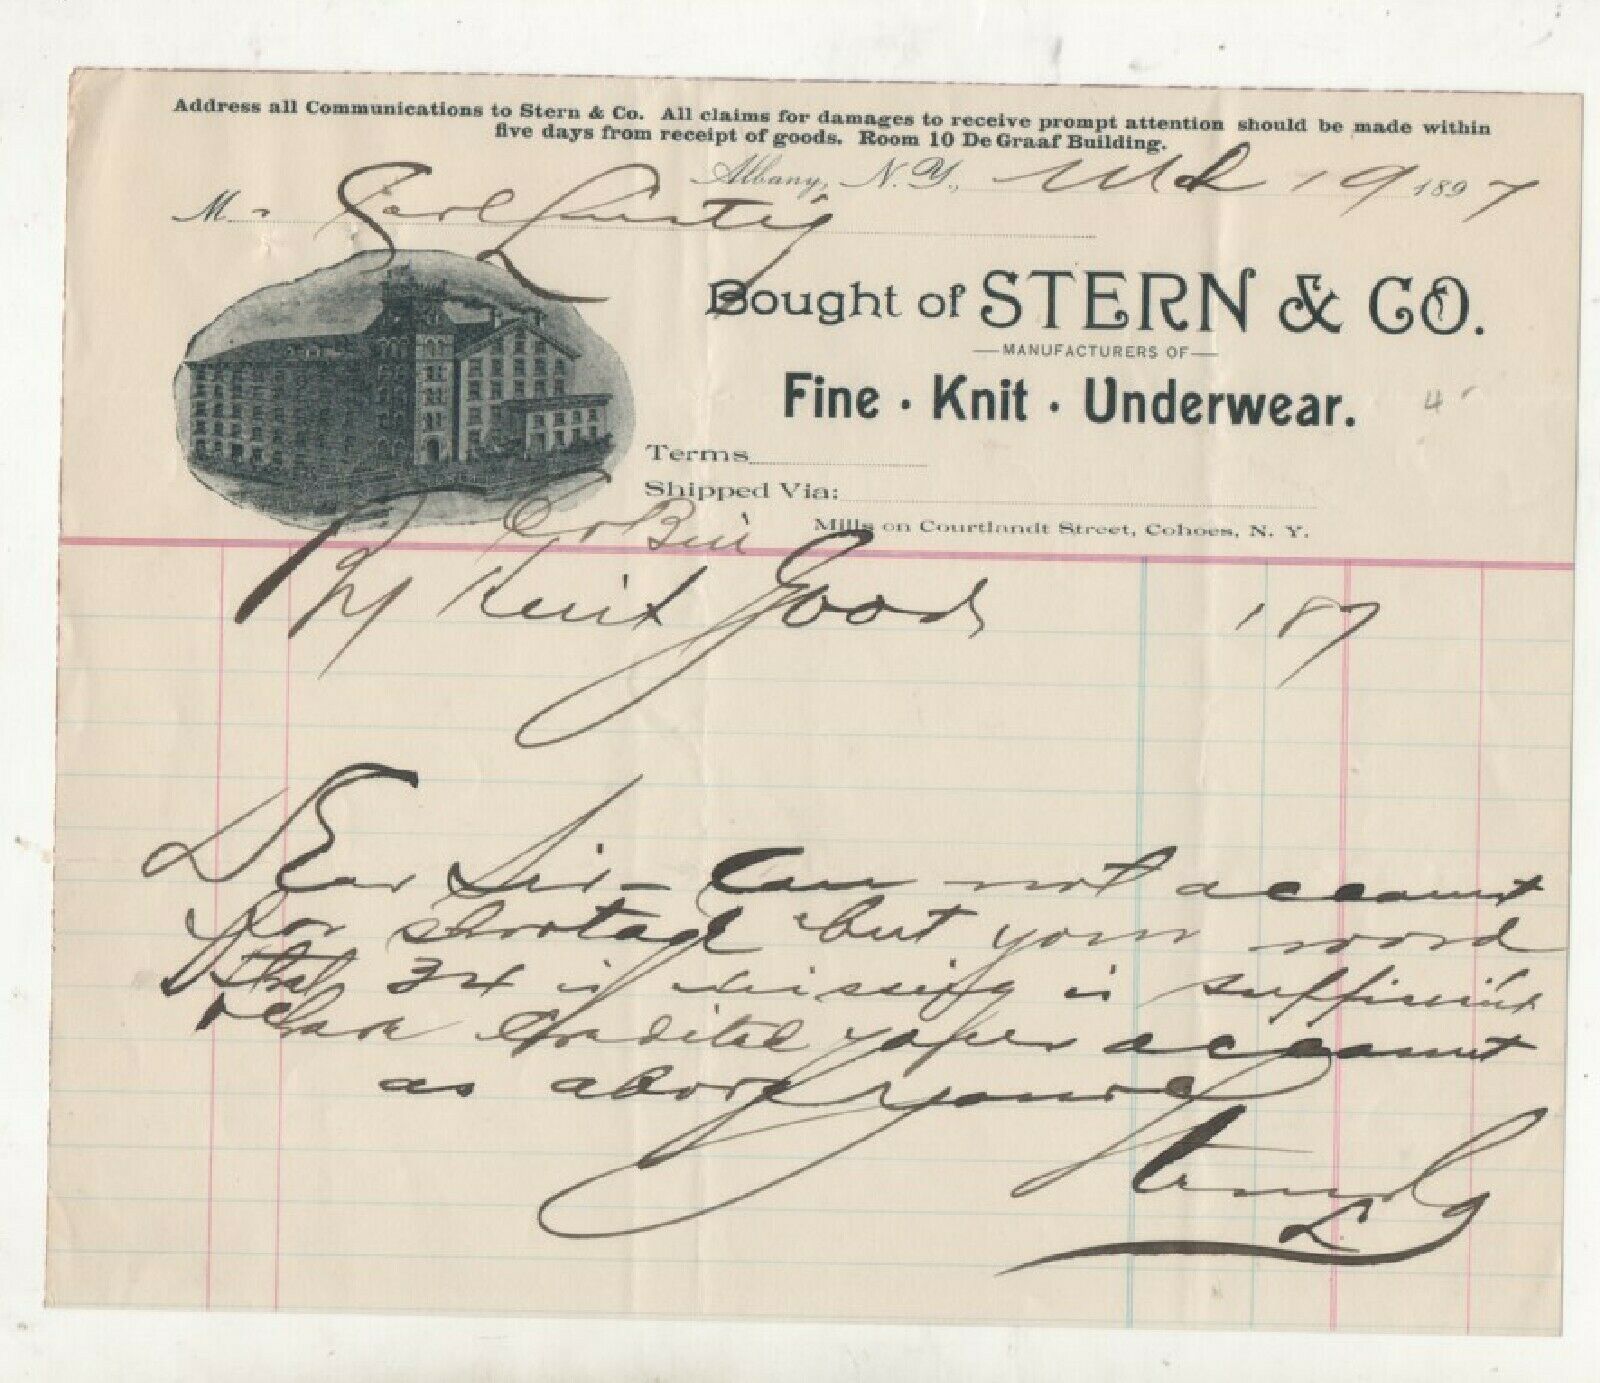 Address all Communications to Stern & Co. All claims for damages to receive prompt attention should be made within
five days from receipt of goods. Room 10 De Graaf Building.
Albany, N. Y., Mch 19 1897
M
Bought of STERN & CO.
MANUFACTURERS OF
Fine · Knit · Underwear.
4
Terms
Shipped Via:
Mills on Courtlandt Street, Cohoes, N. Y.
Cr Bill
By Knit Goods 187
Dear Sir - Can not account
for shortage but your word
that 34 is missing is sufficient
Have credited your account
as above Yours
Stern & Co
L